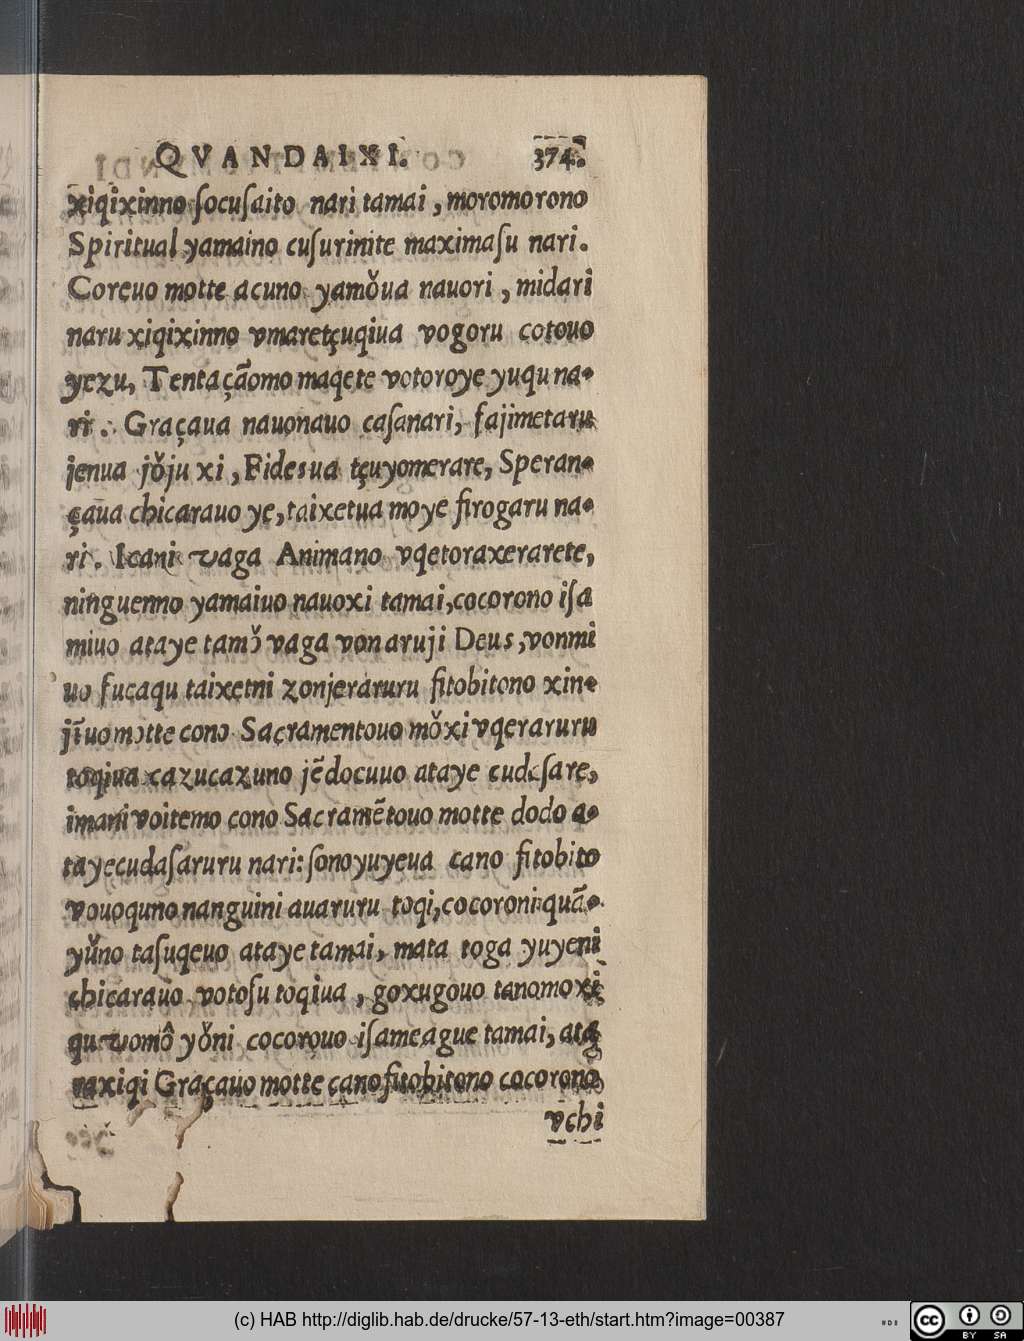 QVANDAIXI. 374.
xiqixinno ſocuſaito nari tamai, moromorono
Spiritual yamaino cuſurinite maximaſu nari.
Corçuo motte acuno yamǒua nauori, midari
naru xiqixinno vmaretçuqiua vogoru cotouo
yezu, Tentaçãomo maqete votoroye yuqu na-
ri. Graçaua nauonauo caſanari, fajimetaru
jenua jǒju xi, Fidesua tçuyomerare, Speran-
çaua chicarauo ye, taixetua moye firogaru na-
ri. Icani vaga Animano vqetoraxerarete,
ninguenno yamaiuo nauoxi tamai, cocorono iſa
miuo ataye tamǒ vaga von aruji Deus, vonmi
uo fucaqu taixetni zonjeraruru fitobitono xin-
jĩuo motte cono Sacramentouo mǒxi vqeraruru
toqiua cazucazuno jẽdocuuo ataye cudaſare,
imani voitemo cono Sacramẽtouo motte dodo a-
taye cudaſaruru nari: ſono yuyeua cano fitobito
vouoquno nanguini auaruru toqi, cocoroni quã-
yǔno taſuqeuo ataye tamai, mata toga yuyeni
chicarauo votoſu toqiua, goxugouo tanomoxi
qu vomô yǒni cocorouo iſameague tamai, ata
raxiqi Graçauo motte cano fitobitono cocorono
vchi
(c) HAB http://diglib.hab.de/drucke/57-13-eth/start.htm?image=00387
cc
BY SA